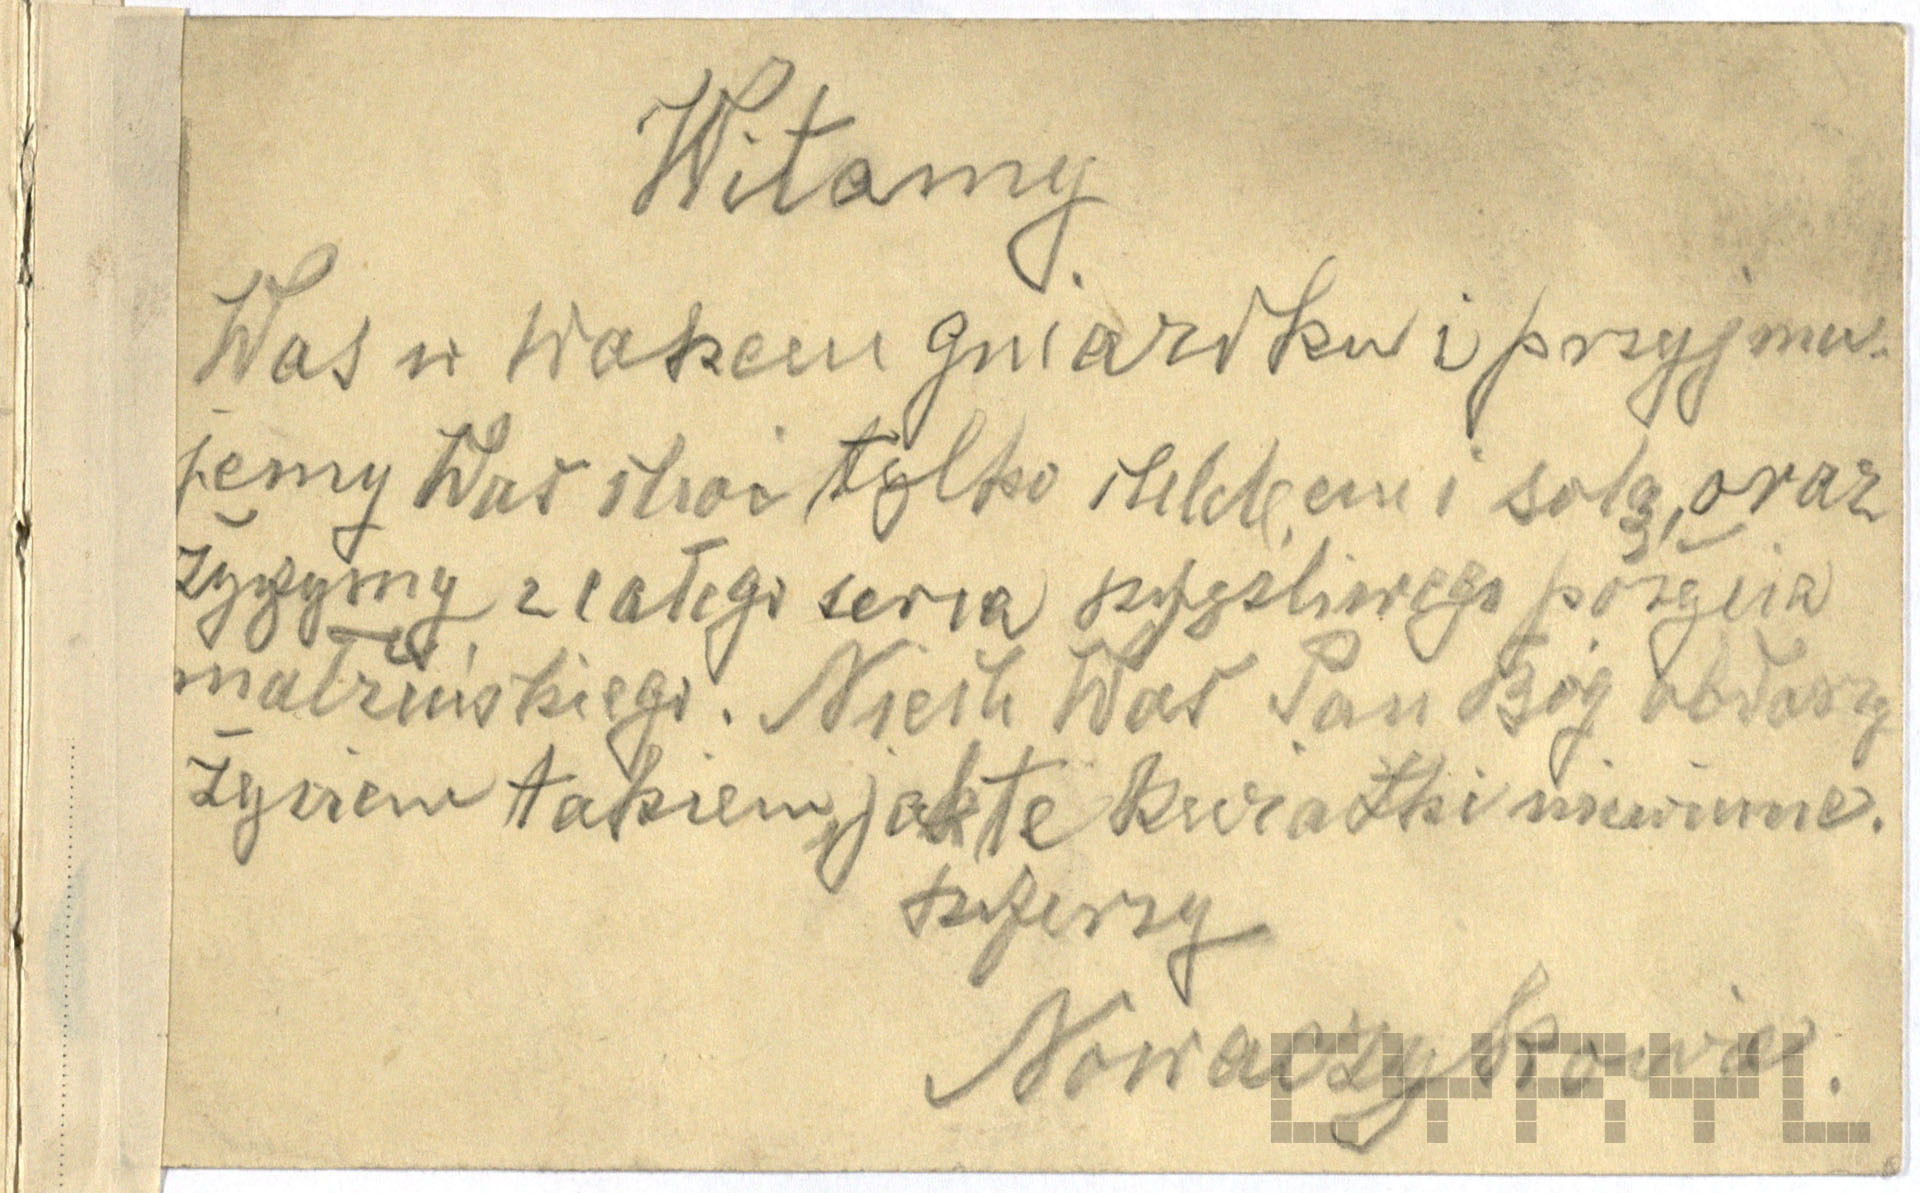 Witamy
Was w Waszem gniazdku i przyjmu-
jemy Was choć tylko chlebem i solą, oraz
życzymy z całego serca szczęśliwego pożycia
małżeńskiego. Niech Was Pan Bóg obdarzy
życiem takiem, jak te kwiatki niewinne.
szczerzy
Nowaczykowie.
CYRYL